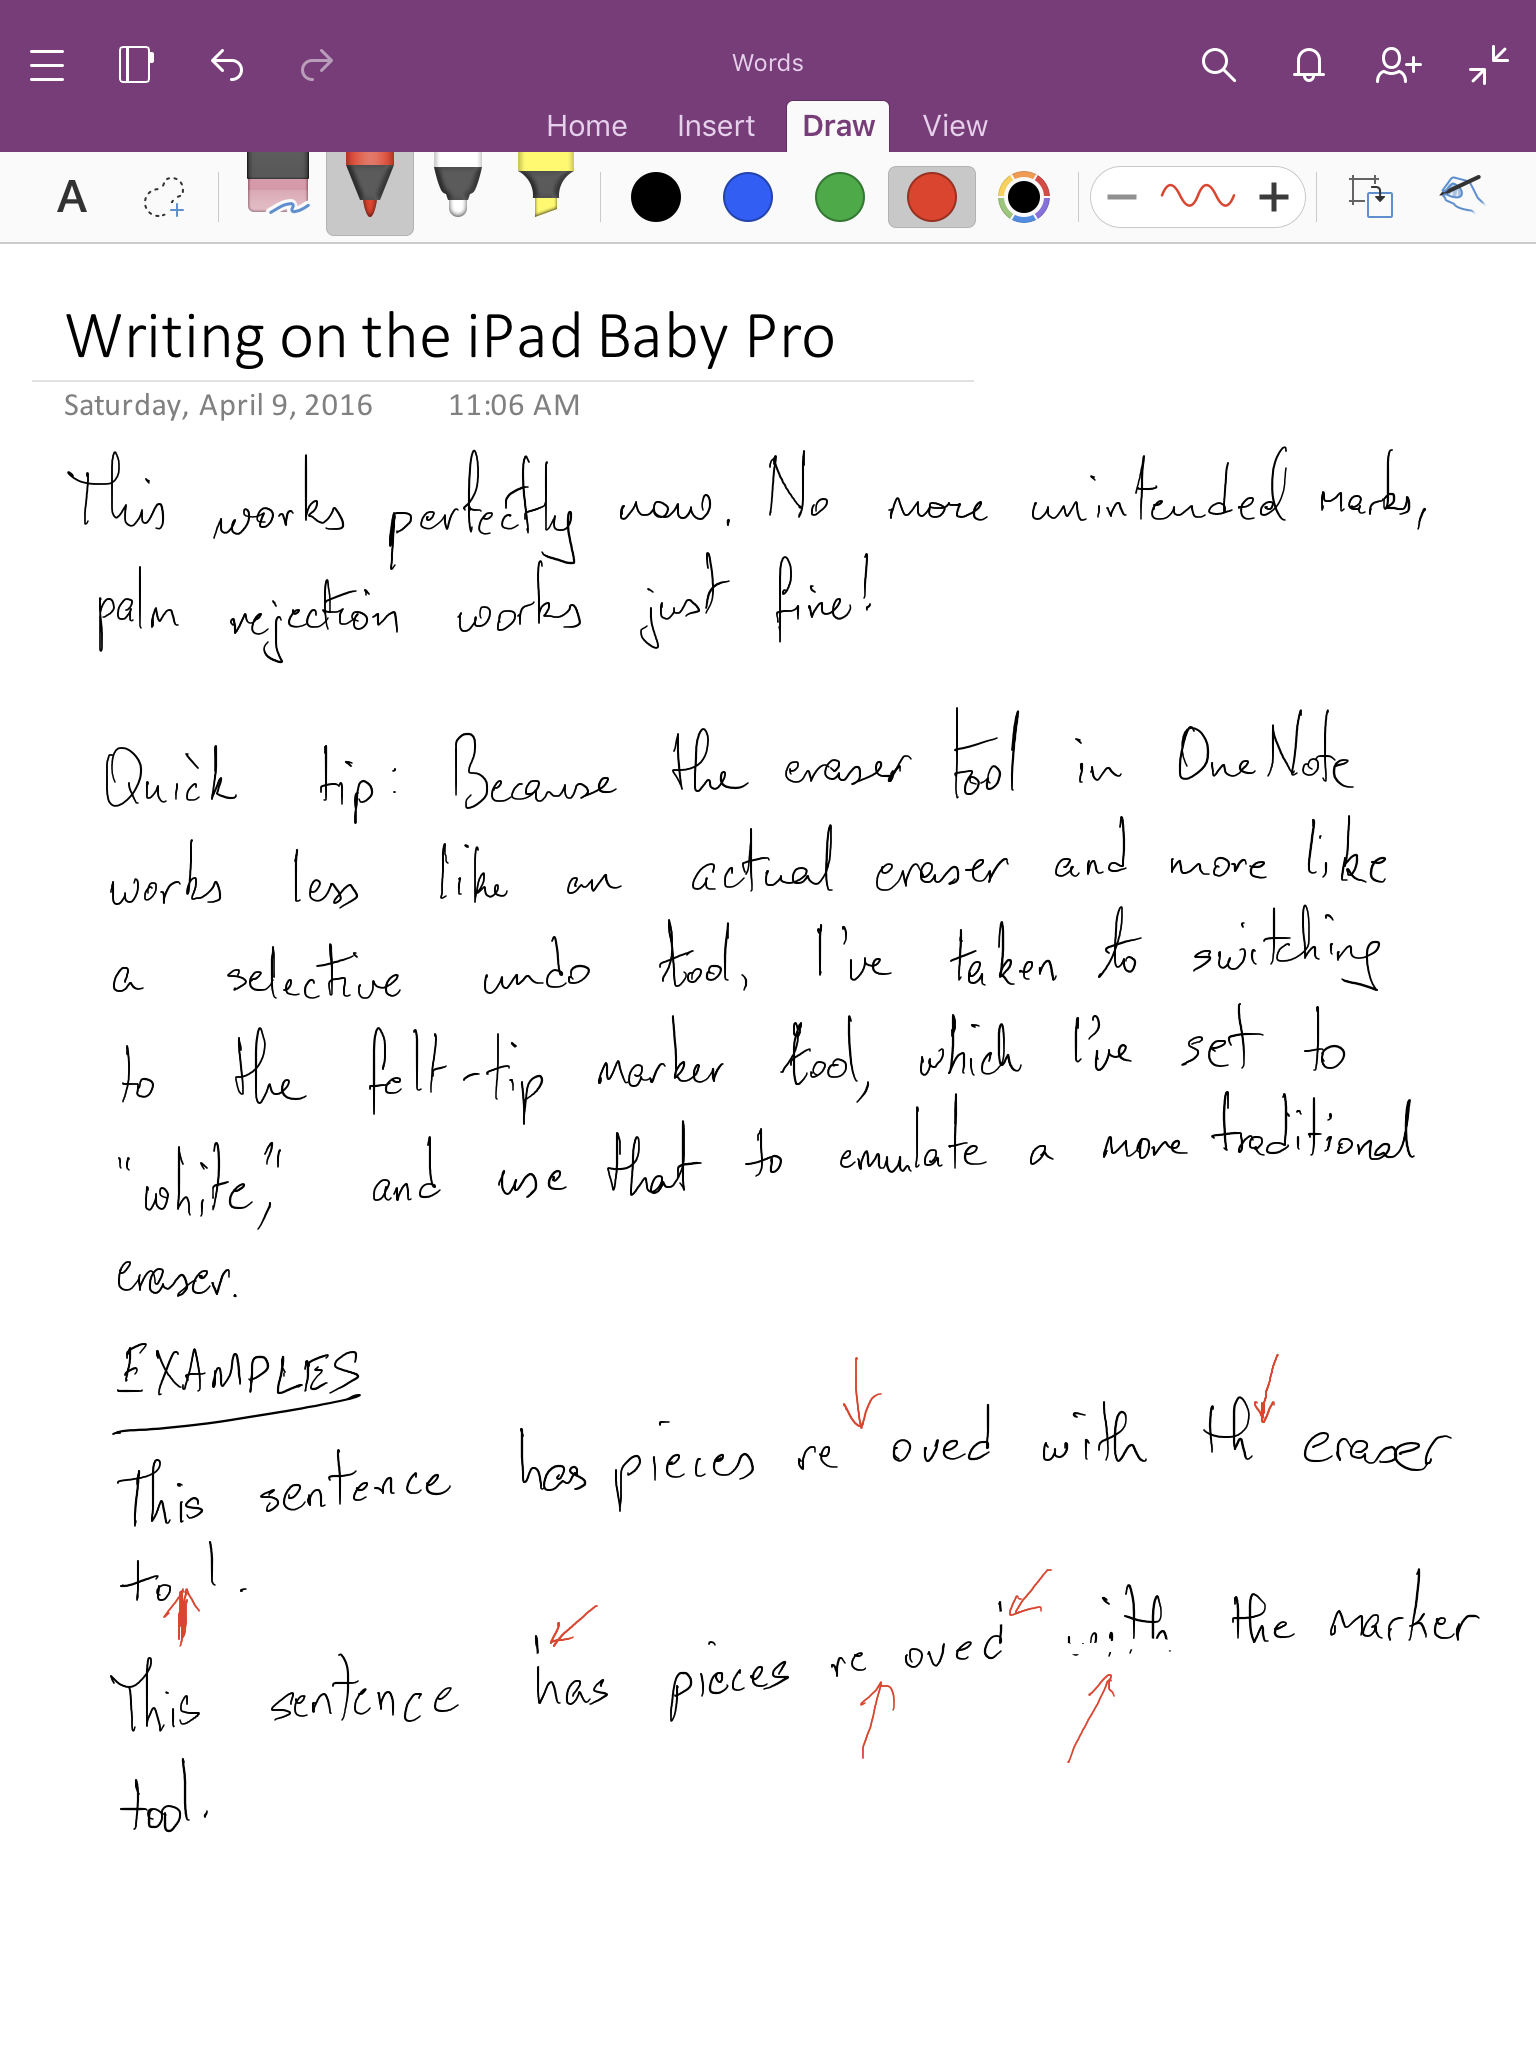 Words
Home Insert Draw View
A
Writing on the iPad Baby Pro
Saturday, April 9, 2016 11:06 AM
This works perfectly now. No more unintended marks,
palm rejection works just fine!
Quick tip: Because the eraser tool in OneNote
works less like an actual eraser and more like
a selective undo tool, I've taken to switching
to the felt-tip marker tool, which I've set to
"white," and use that to emulate a more traditional
eraser.
EXAMPLES
This sentence has pieces re oved with th eraser
to l.
This sentence has pieces re oved with the marker
tool.